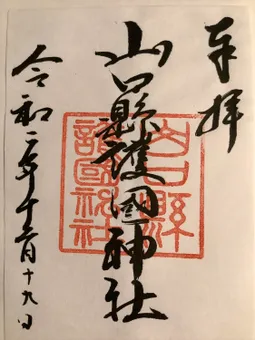 奉拝
山口縣護國神社
山口縣護國神社
令和二年十二月十九日